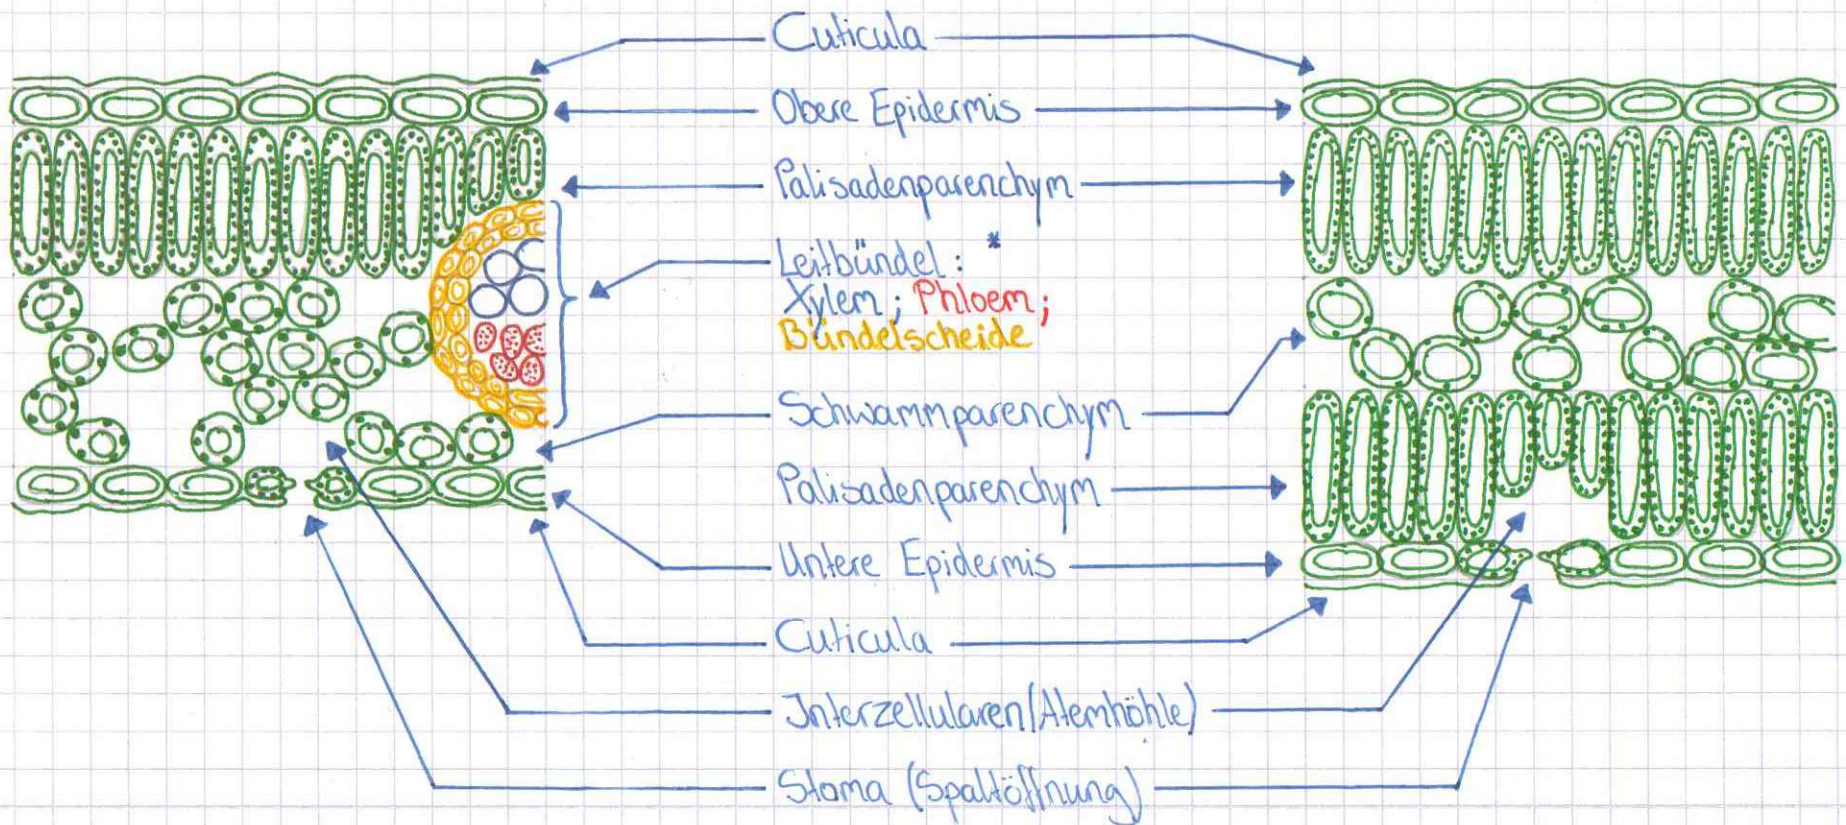 Cuticula
Obere Epidermis
Palisadenparenchym
Leitbündel: *
Xylem; Phloem;
Bündelscheide
Schwammparenchym
Palisadenparenchym
Untere Epidermis
Cuticula
Interzellularen (Atemhöhle)
Stoma (Spaltöffnung)